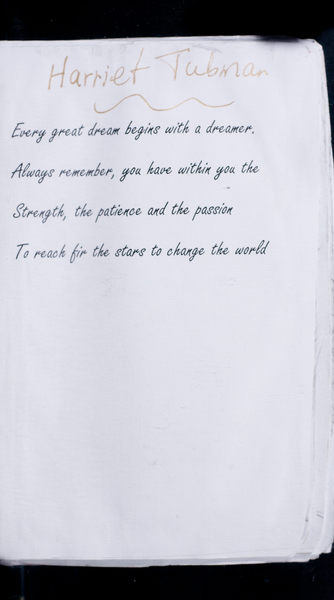 Harriet Tubman
Every great dream begins with a dreamer.
Always remember, you have within you the
Strength, the patience and the passion
To reach fir the stars to change the world